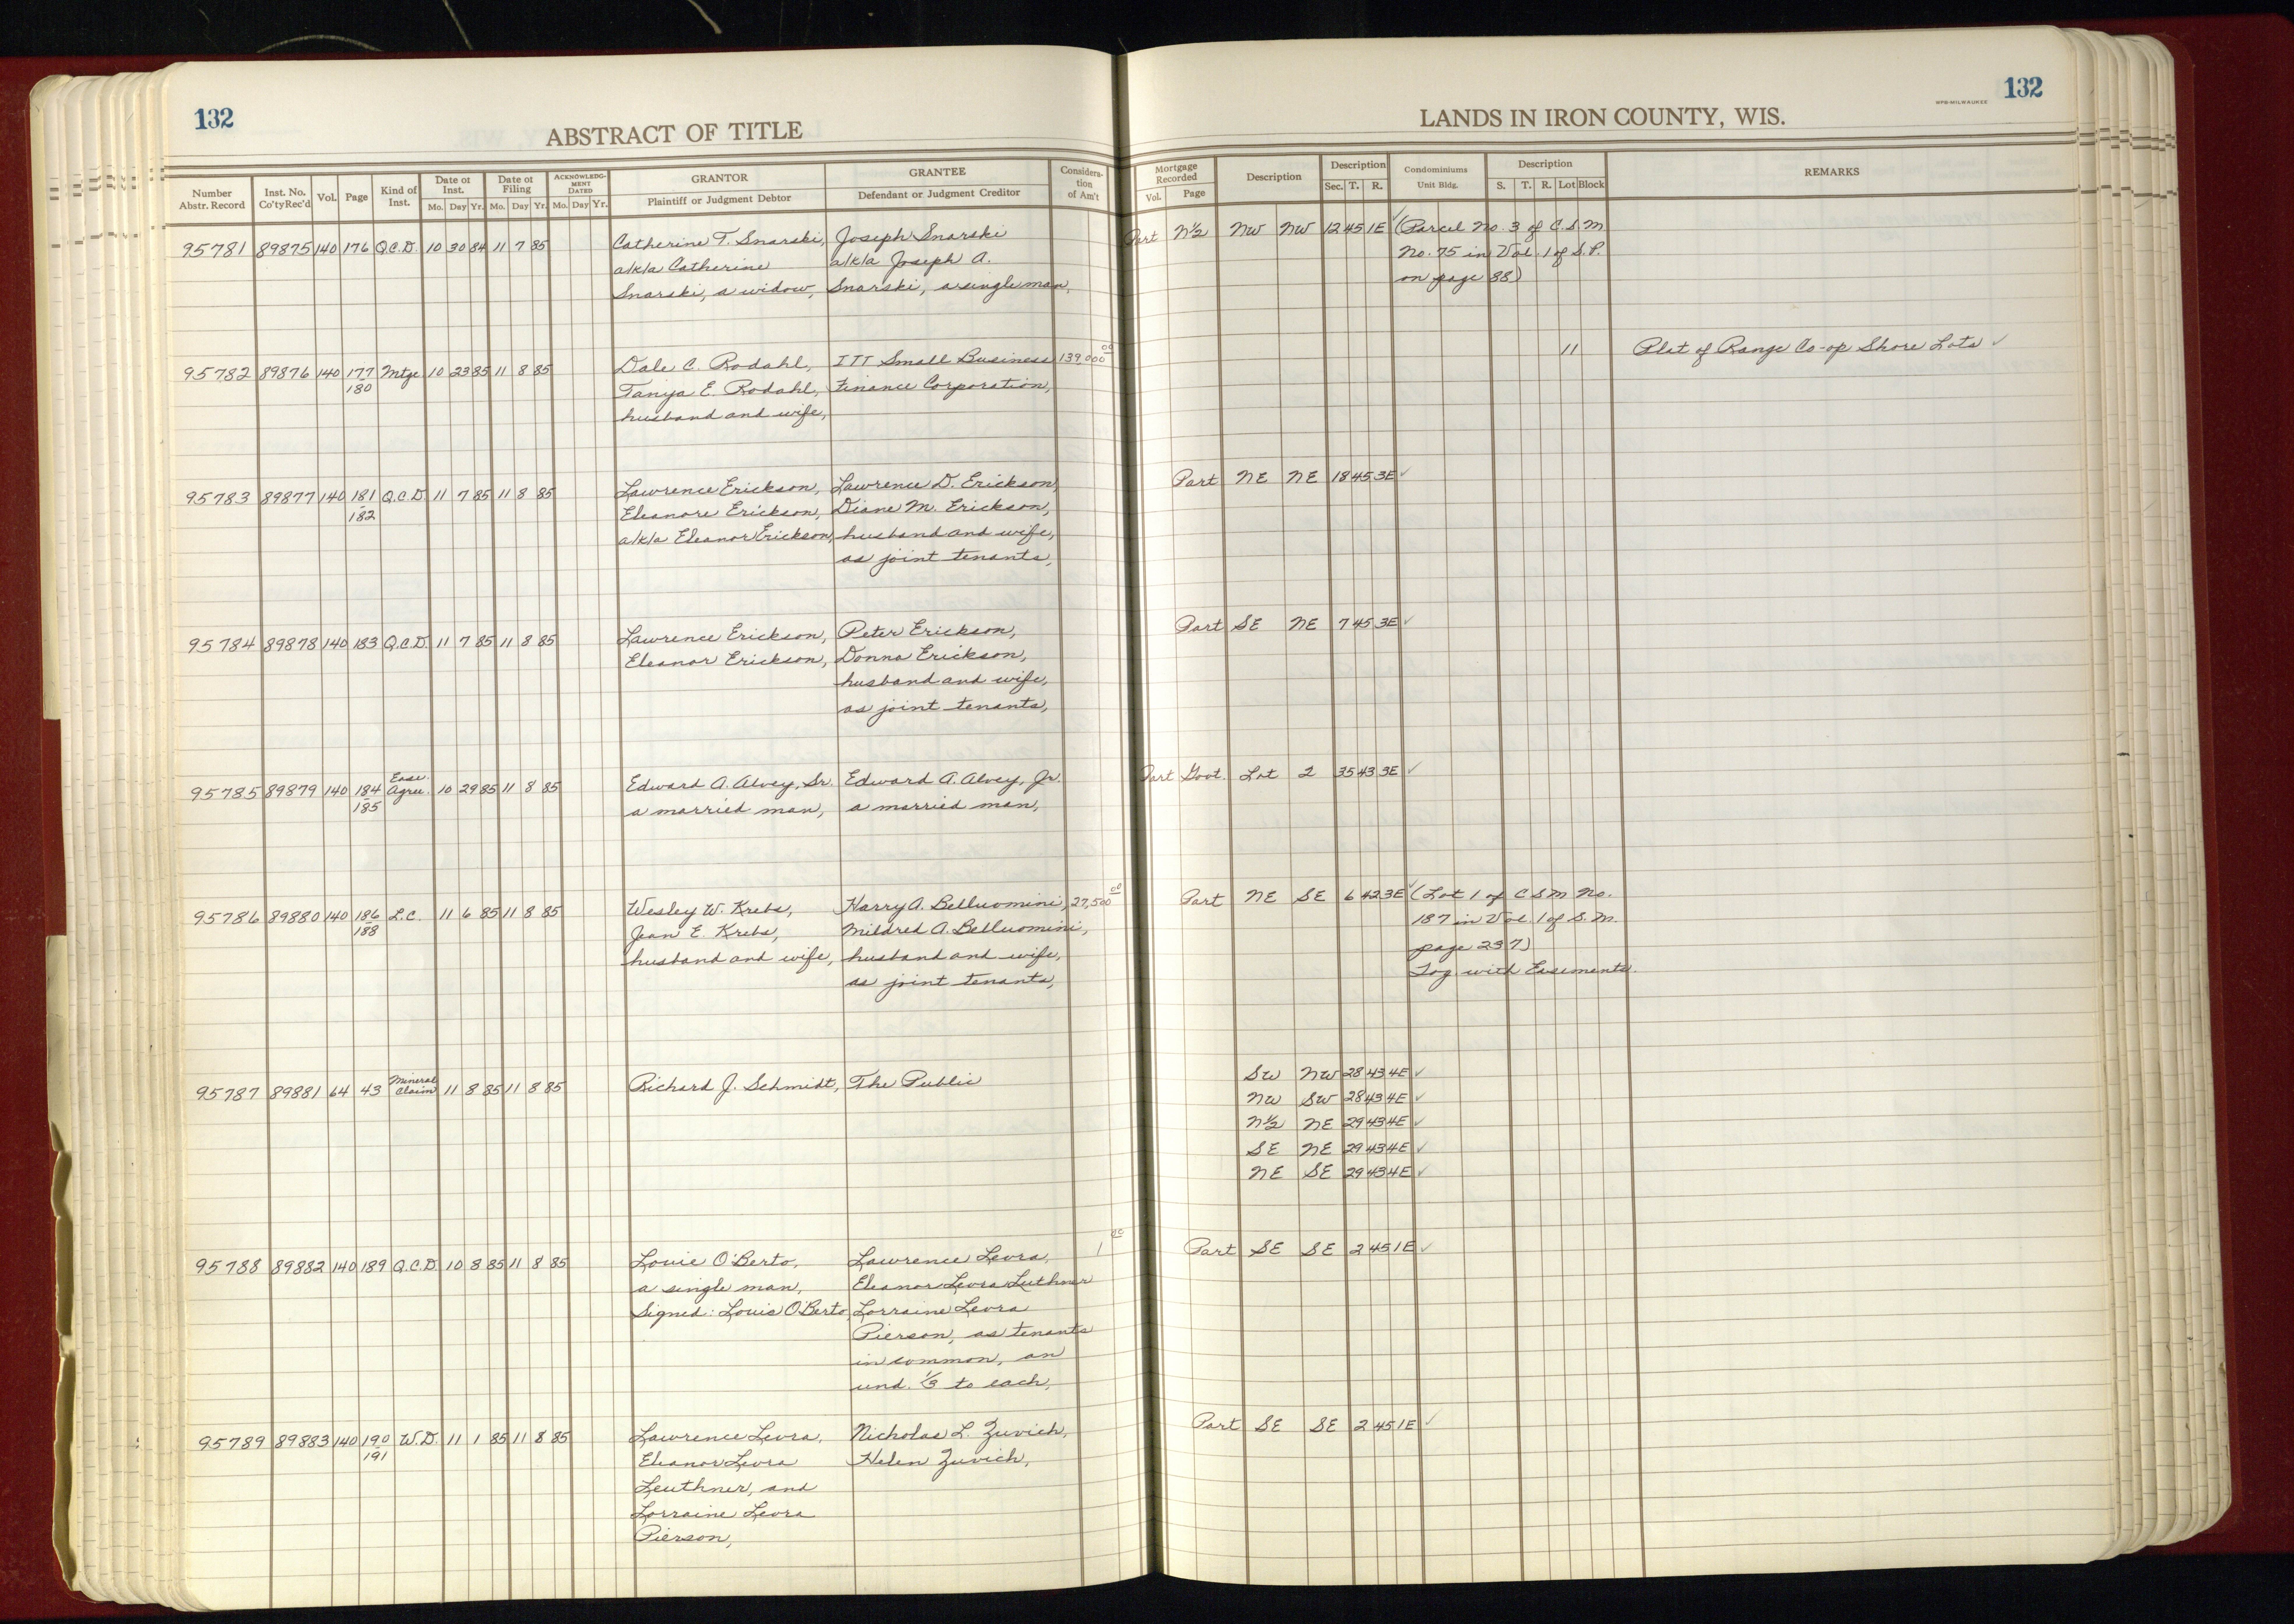 132
ABSTRACT OF TITLE
Number Abstr. Record | Inst. No. Co'ty Rec'd | Vol. | Page | Kind of Inst. | Date of Inst. Mo. Day Yr. | Date of Filing Mo. Day Yr. | ACKNOWLEDGMENT DATED Mo. Day Yr. | GRANTOR Plaintiff or Judgment Debtor | GRANTEE Defendant or Judgment Creditor | Consideration of Am't
95781 89875 140 176 Q.C.D. 10 30 84 11 7 85 Catherine T. Snarski, Joseph Snarski
a/k/a Catherine a/k/a Joseph A.
Snarski, a widow, Snarski, a single man,
95782 89876 140 177 Mtge 10 23 85 11 8 85 Dale C. Rodahl, ITT Small Business 139,000 00
180 Tanya E. Rodahl, Finance Corporation,
husband and wife,
95783 89877 140 181 Q.C.D. 11 7 85 11 8 85 Lawrence Erickson, Lawrence D. Erickson,
182 Eleanore Erickson, Diane M. Erickson,
a/k/a Eleanor Erickson, husband and wife,
as joint tenants,
95784 89878 140 183 Q.C.D. 11 7 85 11 8 85 Lawrence Erickson, Peter Erickson,
Eleanor Erickson, Donna Erickson,
husband and wife,
as joint tenants,
95785 89879 140 184 Ease. Agree. 10 29 85 11 8 85 Edward A. Alvey, Sr. Edward A. Alvey, Jr.
185 a married man, a married man,
95786 89880 140 186 L.C. 11 6 85 11 8 85 Wesley W. Krebs, Harry A. Belluomini, 27,500 00
188 Jean E. Krebs, Mildred A. Belluomini,
husband and wife, husband and wife,
as joint tenants,
95787 89881 64 43 Mineral Claim 11 8 85 11 8 85 Richard J. Schmidt, The Public
95788 89882 140 189 Q.C.D. 10 8 85 11 8 85 Louie O'Berto, Lawrence Levra, 1 00
a single man, Eleanor Levra Luthner
Signed: Louis O'Berto, Lorraine Levra
Pierson, as tenants
in common, an
und. 1/3 to each,
95789 89883 140 190 W.D. 11 1 85 11 8 85 Lawrence Levra, Nicholas L. Zuvich,
191 Eleanor Levra Helen Zuvich,
Leuthner, and
Lorraine Levra
Pierson,
132
WPB-MILWAUKEE
LANDS IN IRON COUNTY, WIS.
Mortgage Recorded Vol. Page | Description | Description Sec. T. R. | Condominiums Unit Bldg. | Description S. T. R. Lot Block | REMARKS
Part N½ NW NW 12 45 1E ✓ (Parcel No. 3 of C.S.M
No. 75 in Vol. 1 of S.P.
on page 88)
11 Plat of Range Co-op Shore Lots ✓
Part NE NE 18 45 3E ✓
Part SE NE 7 45 3E ✓
Part Govt. Lot 2 35 43 3E ✓
Part NE SE 6 42 3E ✓ (Lot 1 of CSM No.
187 in Vol. 1 of S.M.
page 237)
Tog. with Easements.
SW NW 28 43 4E ✓
NW SW 28 43 4E ✓
N½ NE 29 43 4E ✓
SE NE 29 43 4E ✓
NE SE 29 43 4E ✓
Part SE SE 2 45 1E ✓
Part SE SE 2 45 1E ✓